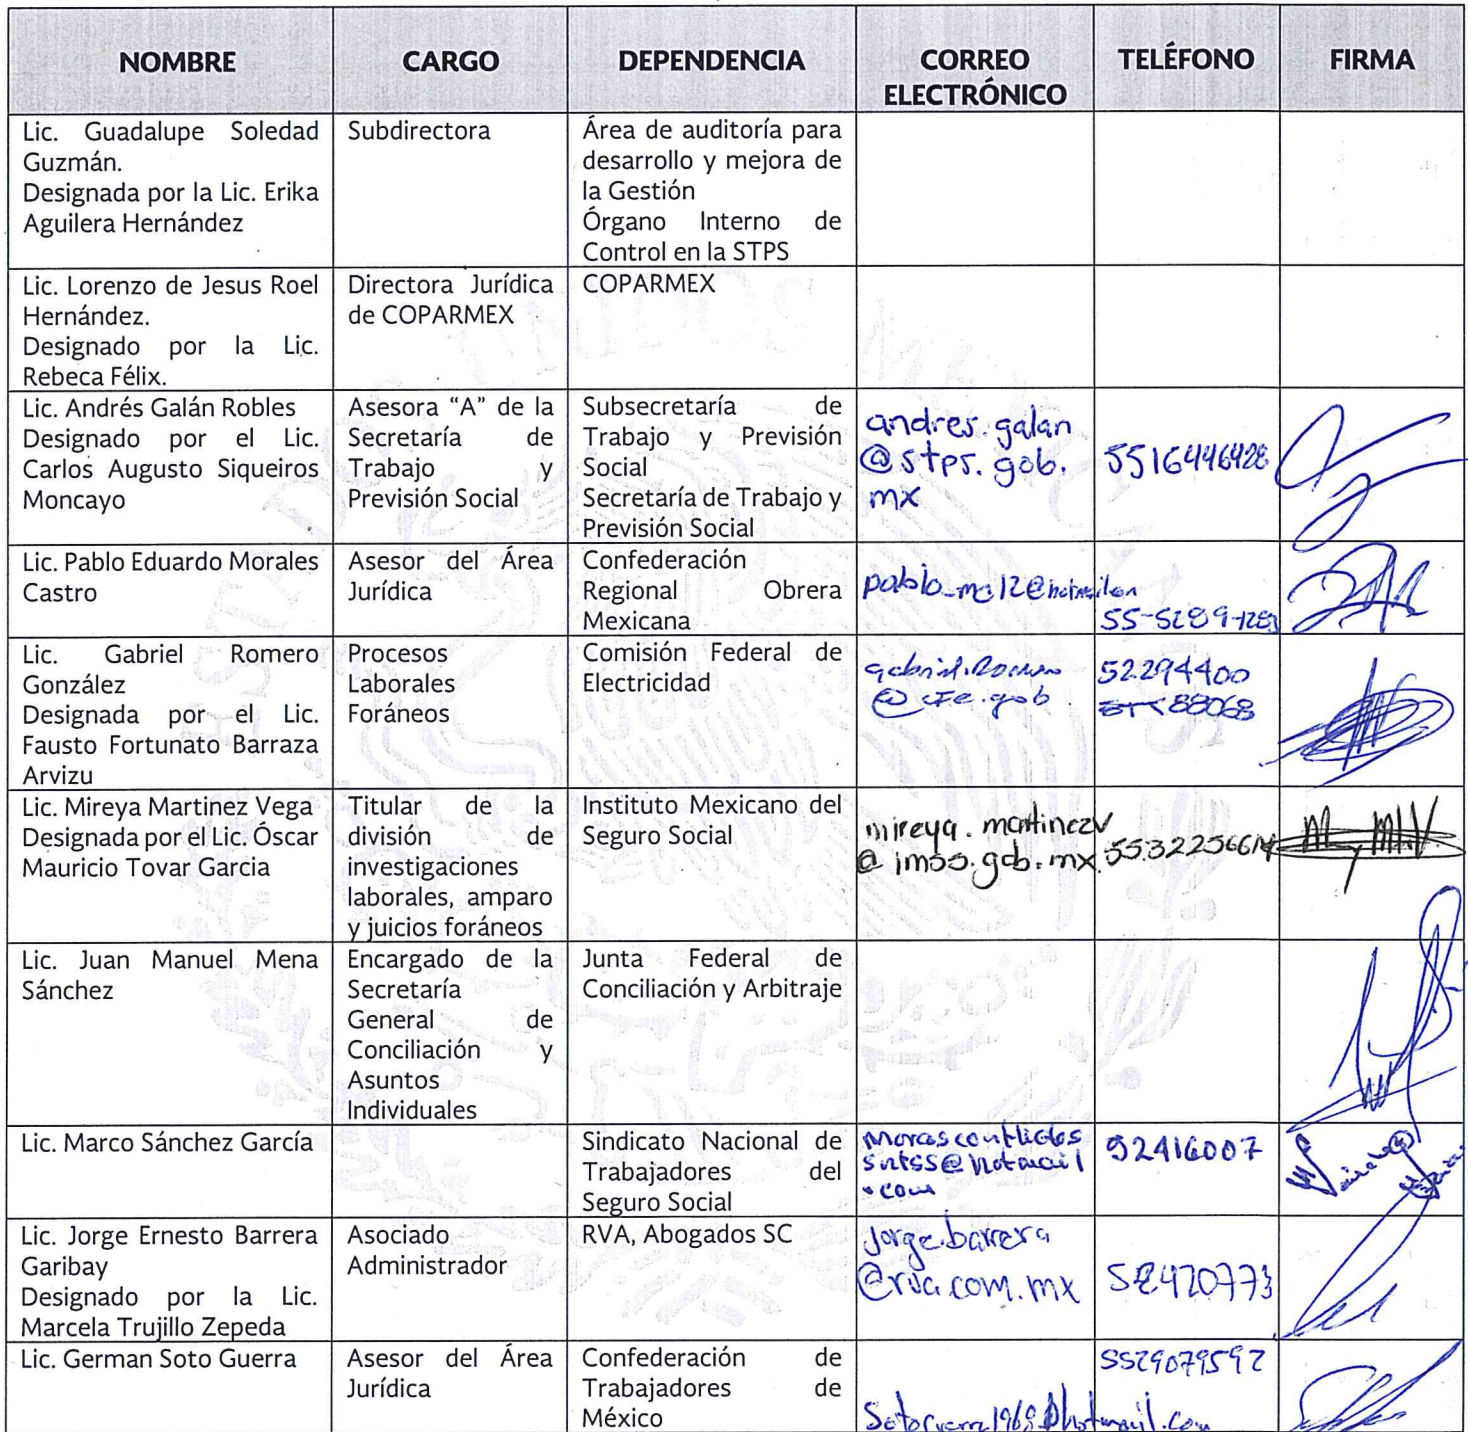 NOMBRE
CARGO
DEPENDENCIA
CORREO
ELECTRÓNICO
TELÉFONO
FIRMA
Lic. Guadalupe Soledad
Guzmán.
Designada por la Lic. Erika
Aguilera Hernández
Subdirectora
Área de auditoría para
desarrollo y mejora de
la Gestión
Órgano Interno de
Control en la STPS
Lic. Lorenzo de Jesus Roel
Hernández.
Designado por la Lic.
Rebeca Félix.
Directora Jurídica
de COPARMEX
COPARMEX
Lic. Andrés Galán Robles
Designado por el Lic.
Carlos Augusto Siqueiros
Moncayo
Asesora “A” de la
Secretaría de
Trabajo y
Previsión Social
Subsecretaría de
Trabajo y Previsión
Social
Secretaría de Trabajo y
Previsión Social
andres.galan
@stps.gob.
mx
5516446428
Lic. Pablo Eduardo Morales
Castro
Asesor del Área
Jurídica
Confederación
Regional Obrera
Mexicana
Lic. Gabriel Romero
González
Designada por el Lic.
Fausto Fortunato Barraza
Arvizu
Procesos
Laborales
Foráneos
Comisión Federal de
Electricidad
@cfe.gob.
52294400
88068
Lic. Mireya Martinez Vega
Designada por el Lic. Óscar
Mauricio Tovar Garcia
Titular de la
división de
investigaciones
laborales, amparo
y juicios foráneos
Instituto Mexicano del
Seguro Social
mireya.martinezv
@imss.gob.mx
Lic. Juan Manuel Mena
Sánchez
Encargado de la
Secretaría
General de
Conciliación y
Asuntos
Individuales
Junta Federal de
Conciliación y Arbitraje
Lic. Marco Sánchez García
Sindicato Nacional de
Trabajadores del
Seguro Social
sntss@hotmail
.com
Lic. Jorge Ernesto Barrera
Garibay
Designado por la Lic.
Marcela Trujillo Zepeda
Asociado
Administrador
RVA, Abogados SC
jorge.barrera
@rva.com.mx
Lic. German Soto Guerra
Asesor del Área
Jurídica
Confederación de
Trabajadores de
México
5529079592